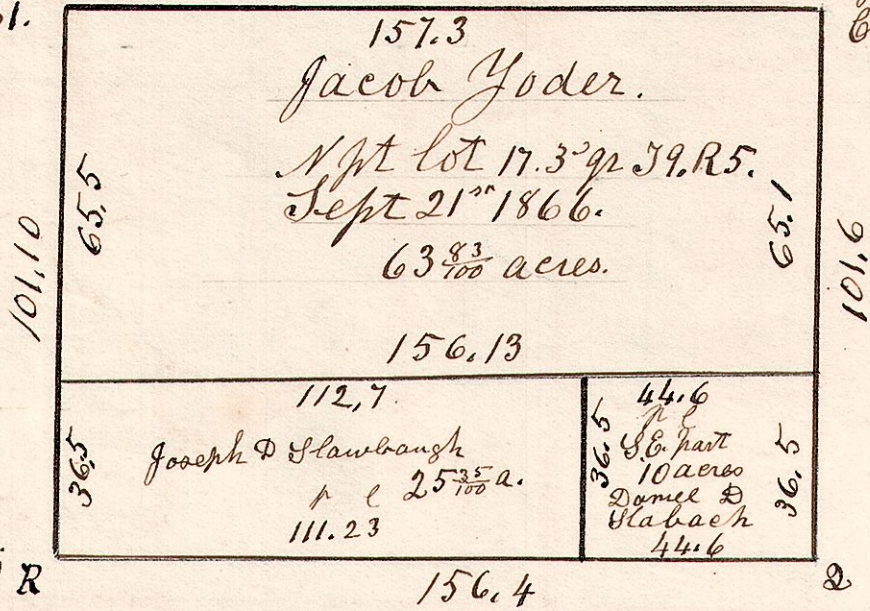 157.3
Jacob Yoder.
N pt lot 17. 3 qr T9. R5.
Sept 21st 1866.
63 83/100 acres.
65.5
65.1
101.10
101.6
156.13
112,7
Joseph D Slawbaugh
25 35/100 a.
111.23
36.5
44.6
S.E. part
10 acres
Daniel D
Slabach
44.6
36.5
36.5
R
156.4
2